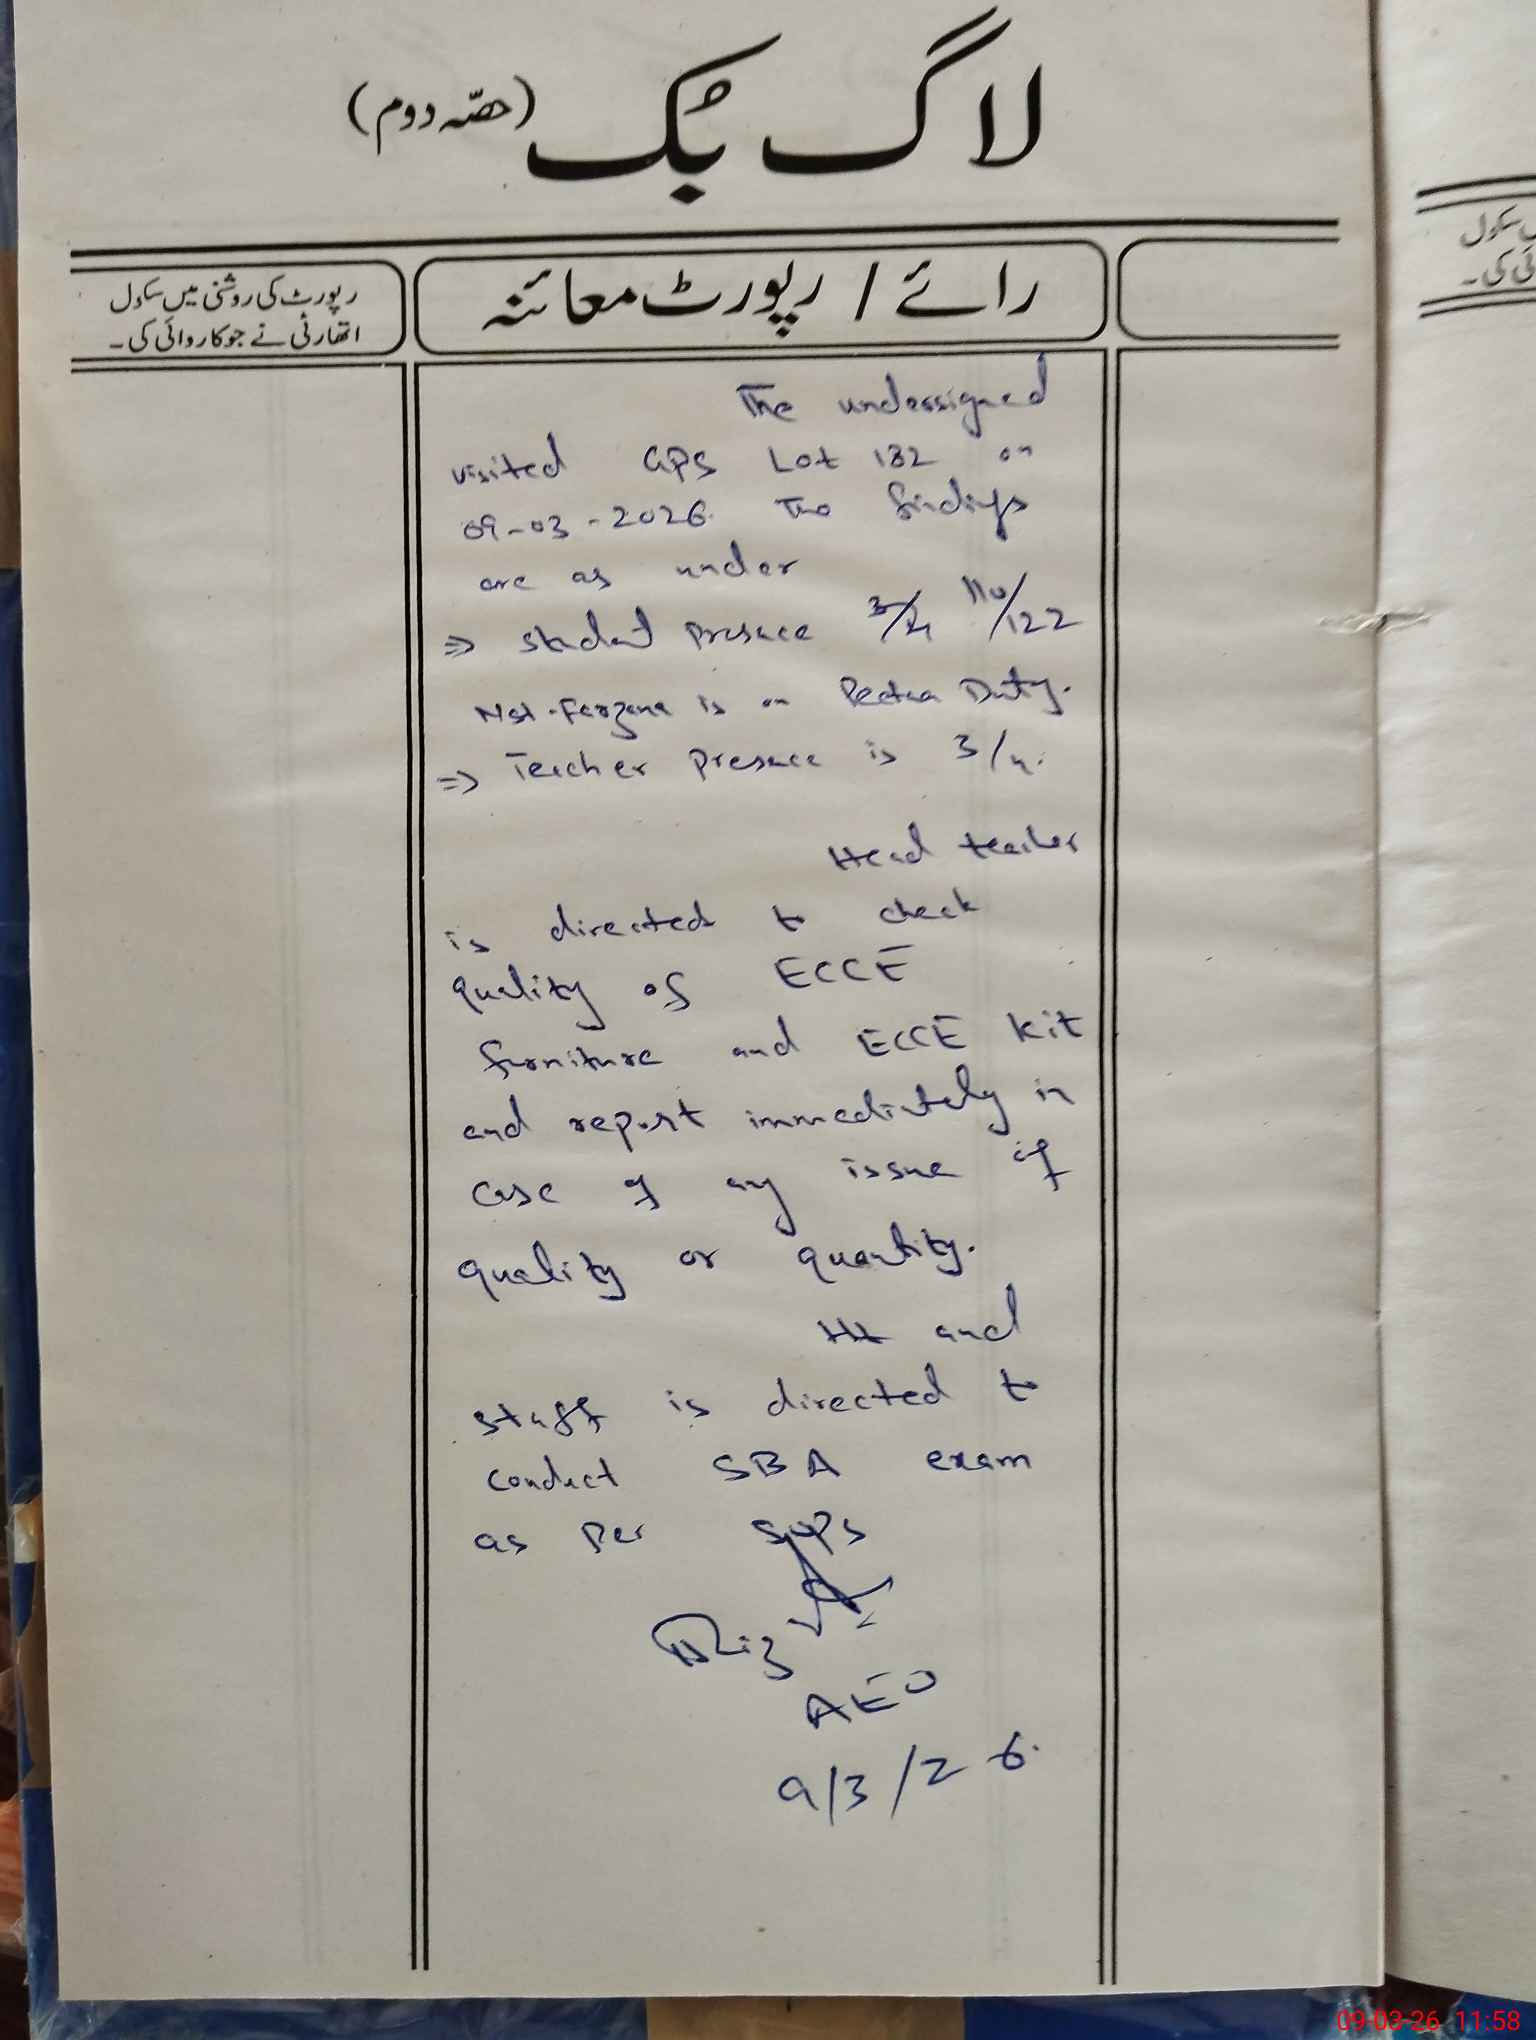 لاگ بُک (حصّہ دوم)
رائے / رپورٹ معائنہ
رپورٹ کی روشنی میں سکول
اتھارٹی نے جو کاروائی کی۔
The undersigned
visited GPS Lot 132 on
09-03-2026. The findings
are as under
⇒ student presence 110/122
Mst. Farzana is on Duty.
⇒ Teacher presence is 3/4.
Head teacher
is directed to check
quality of ECCE
furniture and ECCE Kit
and report immediately in
case of any issue of
quality or quantity.
Ht and
staff is directed to
conduct SBA exam
as per SOPs
AEO
9/3/26.
09-03-26 11:58